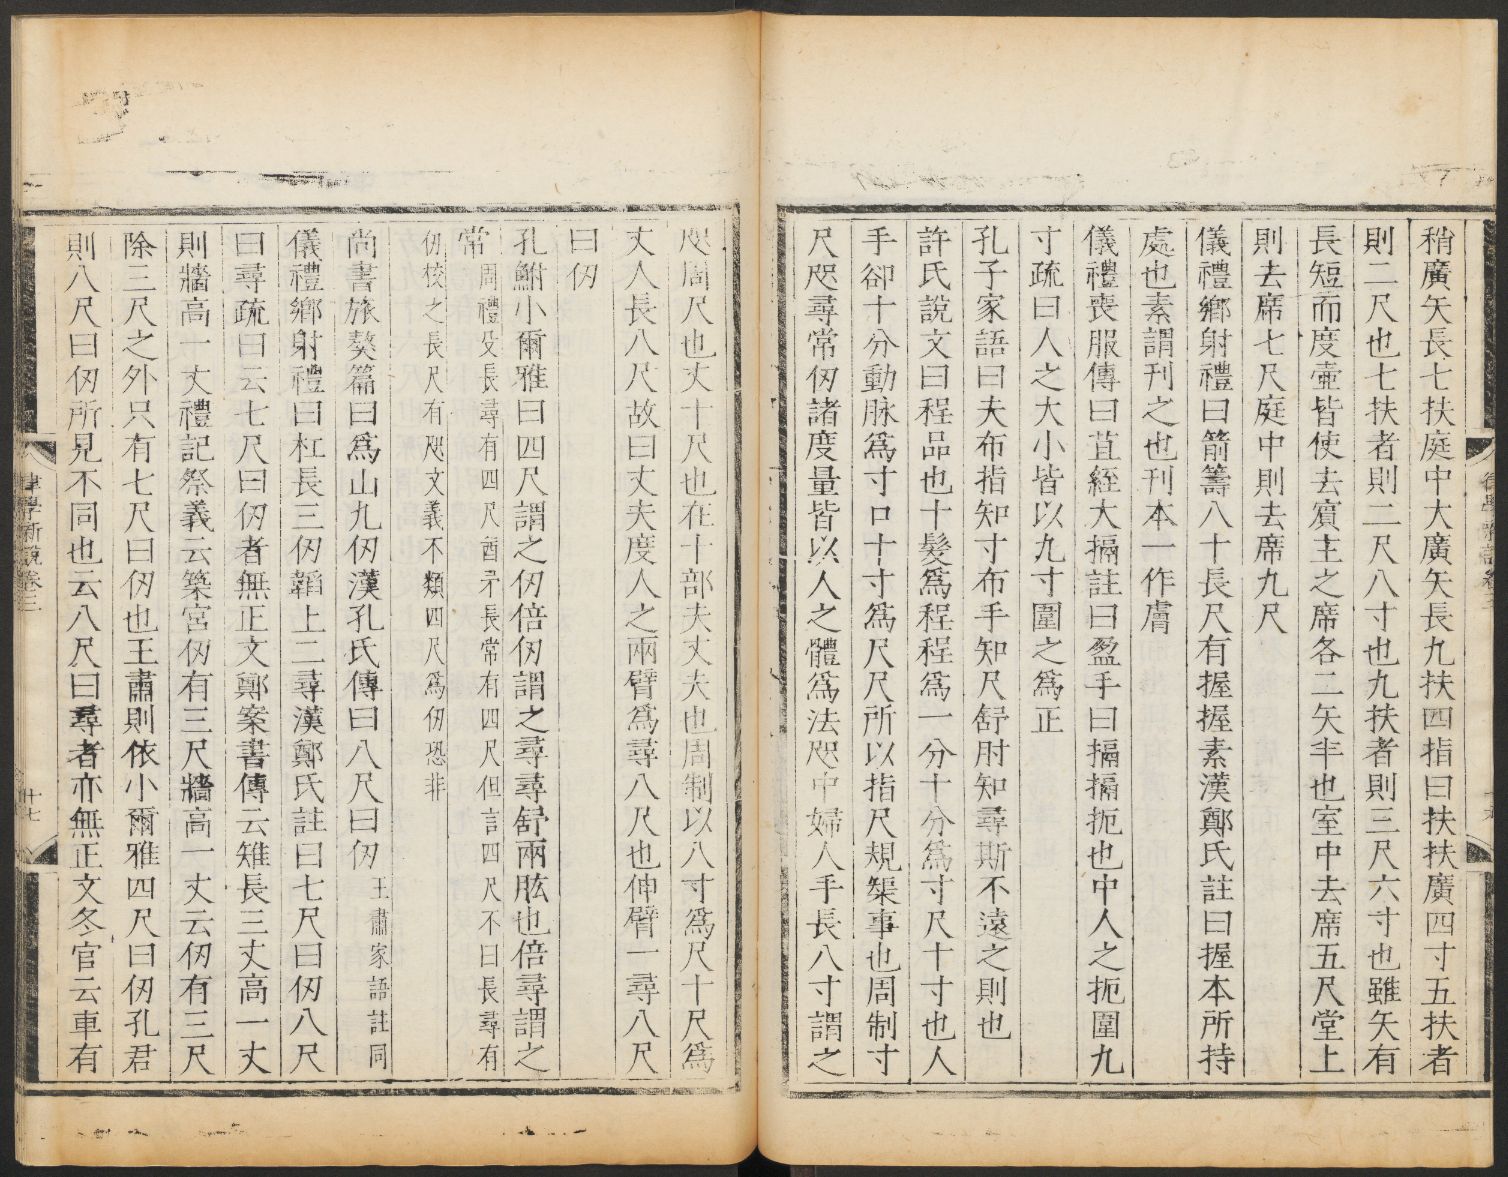 稍廣矢長七扶庭中大廣矢長九扶四指曰扶扶廣四寸五扶者
則二尺也七扶者則二尺八寸也九扶者則三尺六寸也雖矢有
長短而度壺皆使去賓主之席各二矢半也室中去席五尺堂上
則去席七尺庭中則去席九尺
儀禮鄉射禮曰箭籌八十長尺有握握素漢鄭氏註曰握本所持
處也素謂刊之也刊本一作膚
儀禮喪服傳曰苴絰大搹註曰盈手曰搹搹扼也中人之扼圍九
寸疏曰人之大小皆以九寸圍之為正
孔子家語曰夫布指知寸布手知尺舒肘知尋斯不遠之則也
許氏說文曰程品也十髮為程程為一分十分為寸尺十寸也人
手卻十分動脉為寸口十寸為尺尺所以指尺規榘事也周制寸
尺咫尋常仞諸度量皆以人之體為法咫中婦人手長八寸謂之
咫周尺也丈十尺也在十部夫丈夫也周制以八寸為尺十尺為
丈人長八尺故曰丈夫度人之兩臂為尋八尺也伸臂一尋八尺
曰仞
孔鮒小爾雅曰四尺謂之仞倍仞謂之尋尋舒兩肱也倍尋謂之
常周禮殳長尋有四尺酋矛長常有四尺但言四尺不曰長尋有
仞校之長尺有咫文義不類四尺為仞恐非
尚書旅獒篇曰為山九仞漢孔氏傳曰八尺曰仞王肅家語註同
儀禮鄉射禮曰杠長三仞韜上二尋漢鄭氏註曰七尺曰仞八尺
曰尋疏曰云七尺曰仞者無正文鄭案書傳云雉長三丈高一丈
則牆高一丈禮記祭義云築宮仞有三尺牆高一丈云仞有三尺
除三尺之外只有七尺曰仞也王肅則依小爾雅四尺曰仞孔君
則八尺曰仞所見不同也云八尺曰尋者亦無正文冬官云車有
律學新說卷三
十七